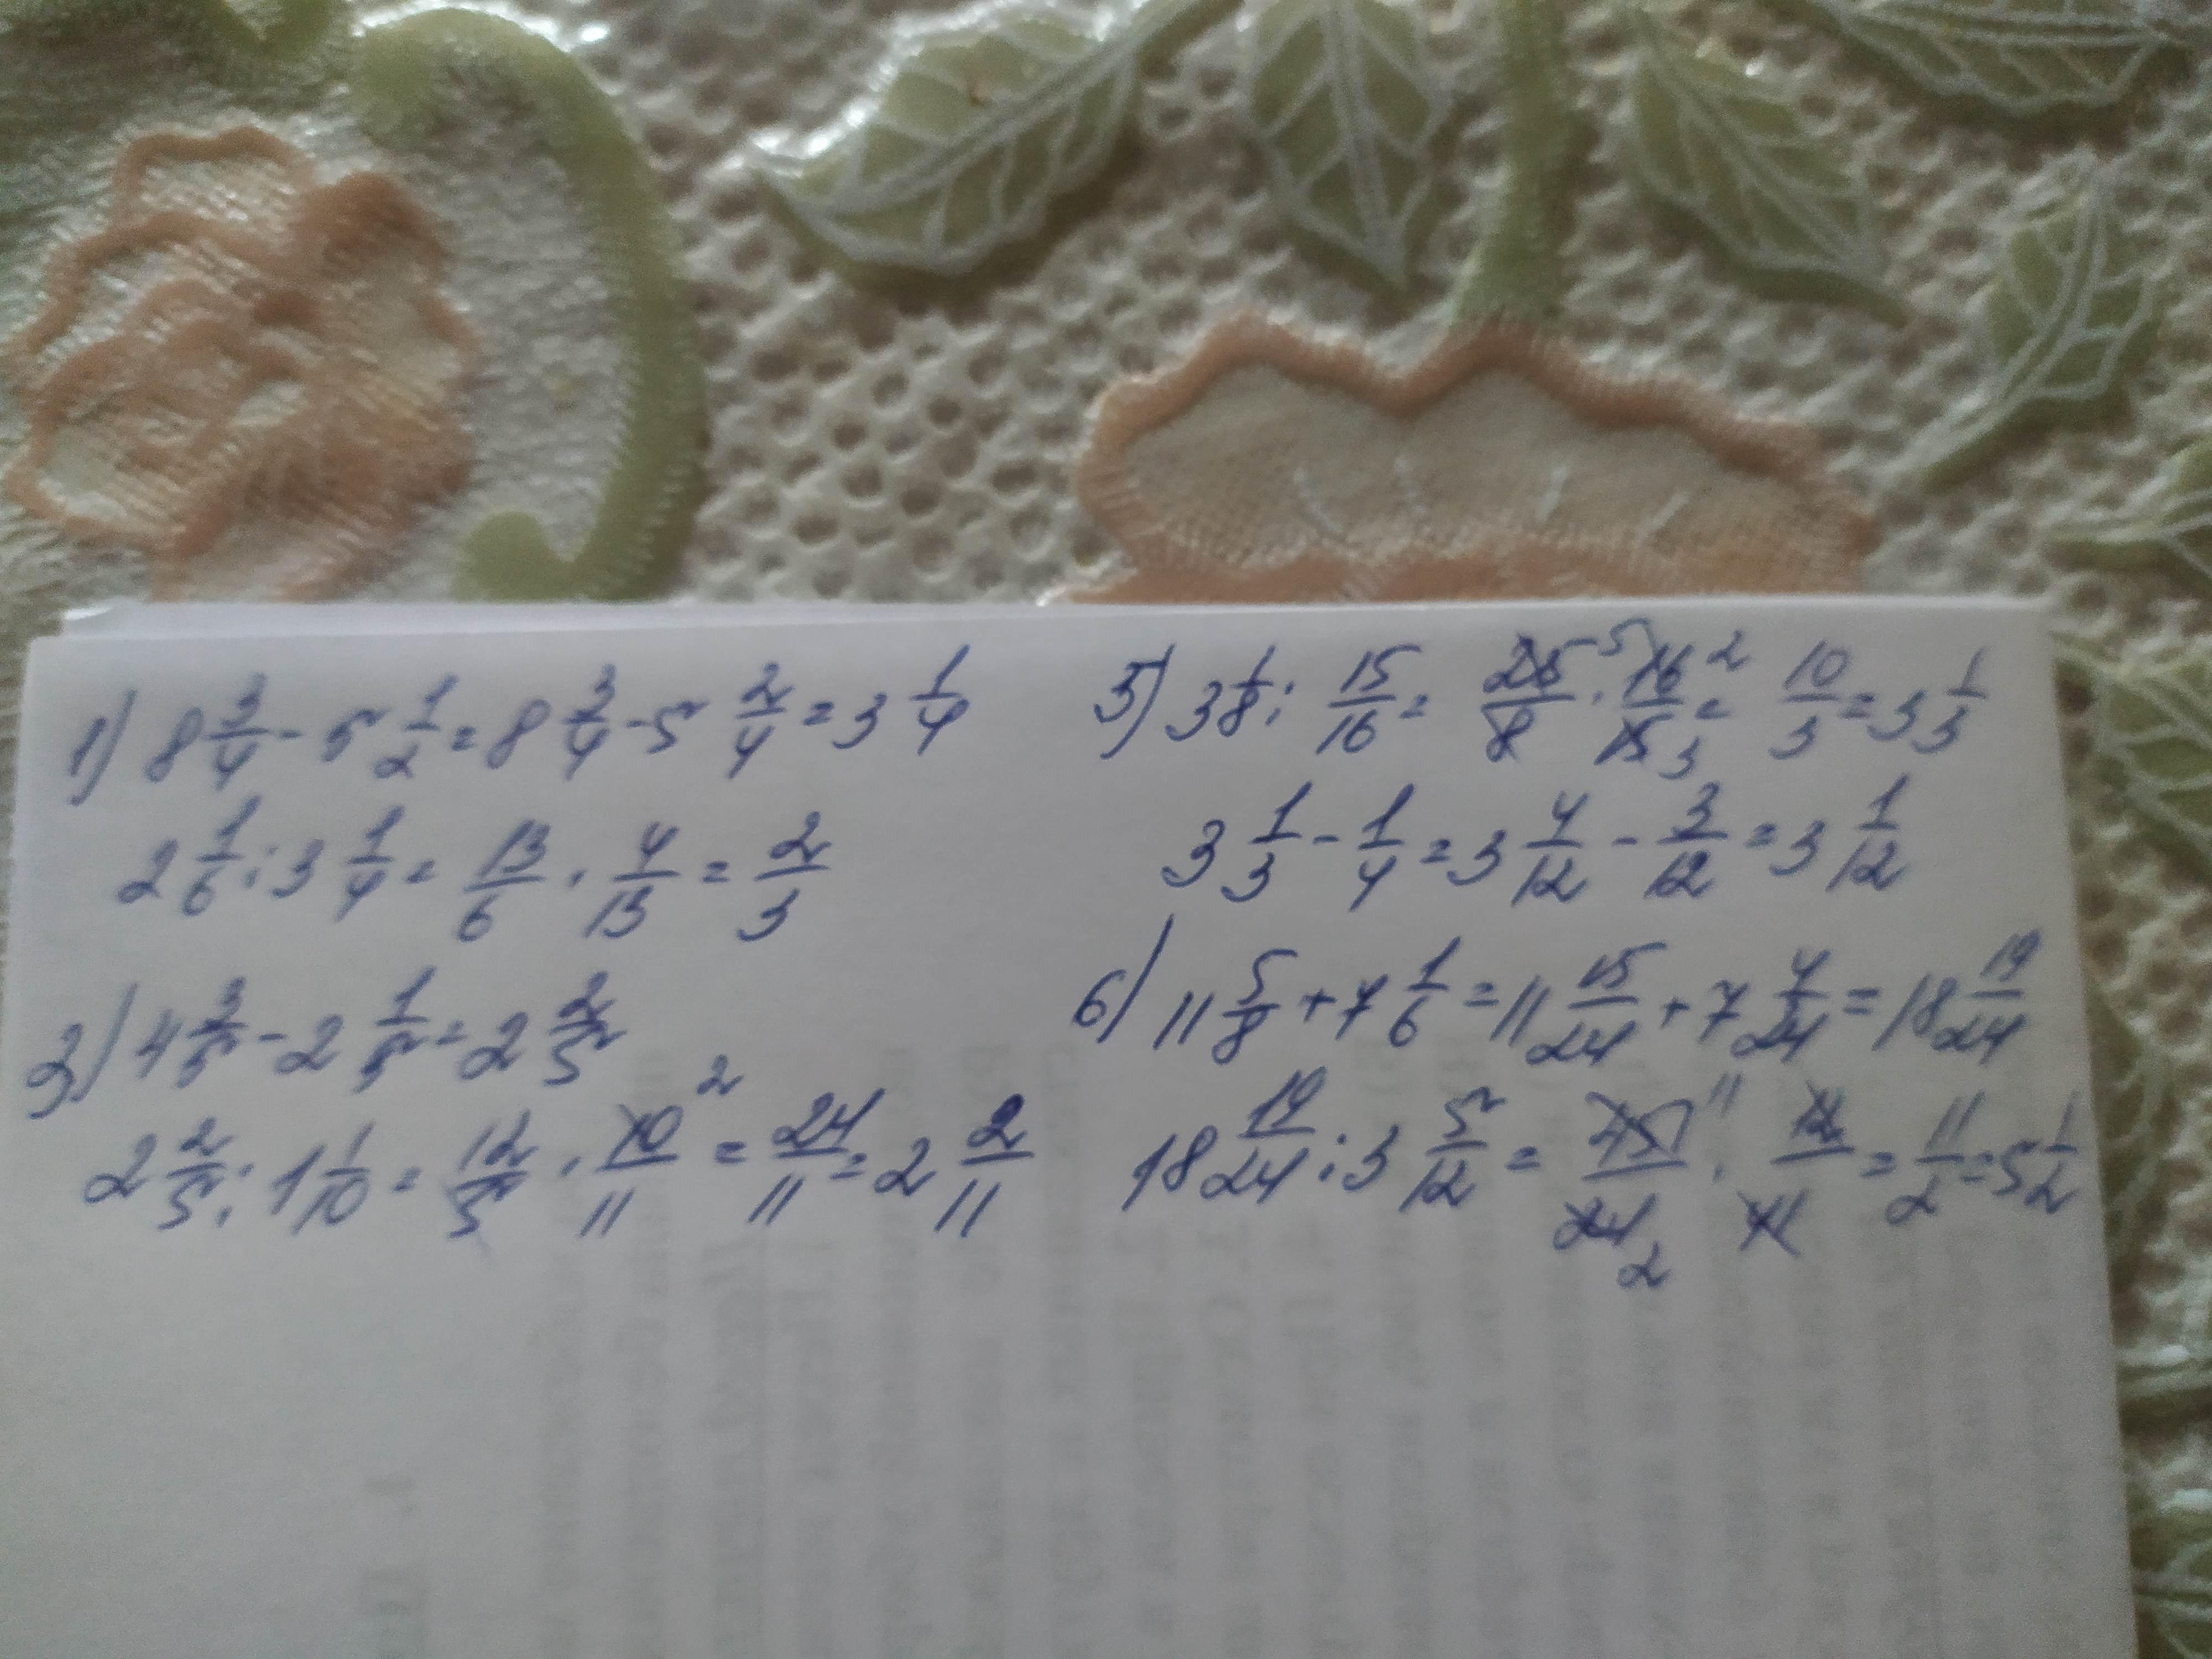 1) 8 3/4 - 5 1/2 = 8 3/4 - 5 2/4 = 3 1/4
2 1/6 : 3 1/4 = 13/6 · 4/13 = 2/3
2) 4 3/5 - 2 1/5 = 2 2/5
2 2/5 : 1 1/10 = 12/5 · 10/11 2 = 24/11 = 2 2/11
5) 3 1/8 : 15/16 = 25/8 5 · 16/15 2 3 = 10/3 = 3 1/3
3 1/3 - 1/4 = 3 4/12 - 3/12 = 3 1/12
6) 11 5/8 + 7 1/6 = 11 15/24 + 7 4/24 = 18 19/24
18 19/24 : 3 5/12 = 451/24 11 2 · 12/41 = 11/2 = 5 1/2